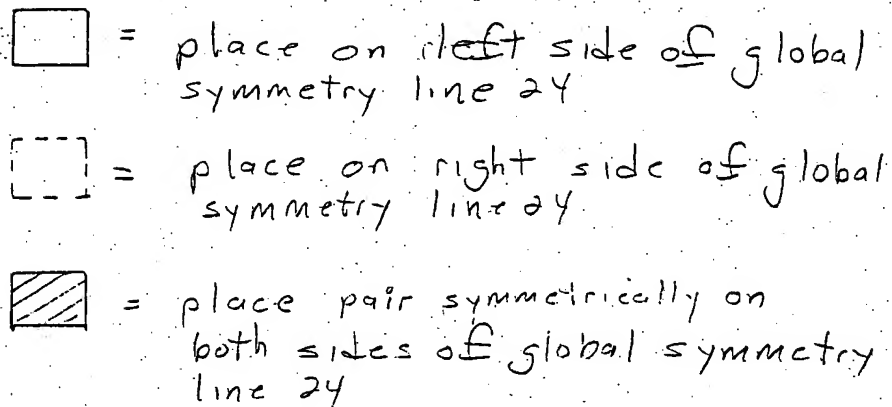 = place on left side of global
symmetry line 24
= place on right side of global
symmetry line 24
= place pair symmetrically on
both sides of global symmetry
line 24